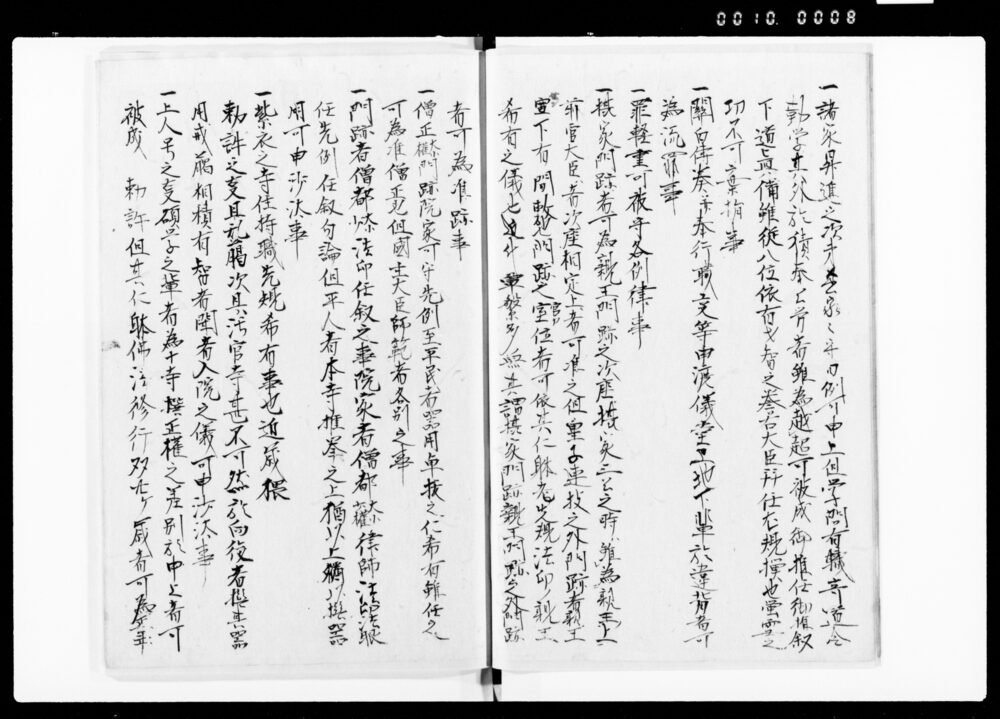 0010.0008
一諸家昇進之次才其家々守旧例可申上但学問有職哥道令
勤学其外於積奉公労者雖為越起可被成御推任御推叙
下道真備雖従八位依有才智之誉右大臣拝任尤規摸也螢雪之
功不可棄捐事
一關白傳奏并奉行職支等申渡儀堂上地下輩於違背者可
為流罪事
一罪軽重可被守名例律事
一摂家門跡者可為親王門跡之次座摂家三公之時雖為親王上
前官大臣者次座相定上者可准之但皇子連枝之外門跡者親王
宣下有間敷門跡之室官位者可依其仁躰考先規法印親王
希有之儀也近年 繁多無其謂摂家門跡親王門跡之外門跡
者可為准跡事
一僧正大権門跡院家可守先例至平民者器用卓拔之仁希有雖任之
可為准僧正也但國主大臣師範者各別之事
一門跡者僧都大少法印任叙之事院家者僧都大少權律師法印法眼
任先例任叙勿論但平人者本寺推挙之上猶以上撰器
用可申沙汰事
一紫衣之寺住持職先規希有事也近歳猥
勅許之事且乱﨟次且汚官寺甚不可然於向後者撰其器
用戒﨟相積有智者聞者入院之儀可申沙汰事
一上人号之事碩学之輩者為十寺撰正權之差別於申上者可
被成 勅許但其仁躰佛法修行及廿ヶ歳者可為正年